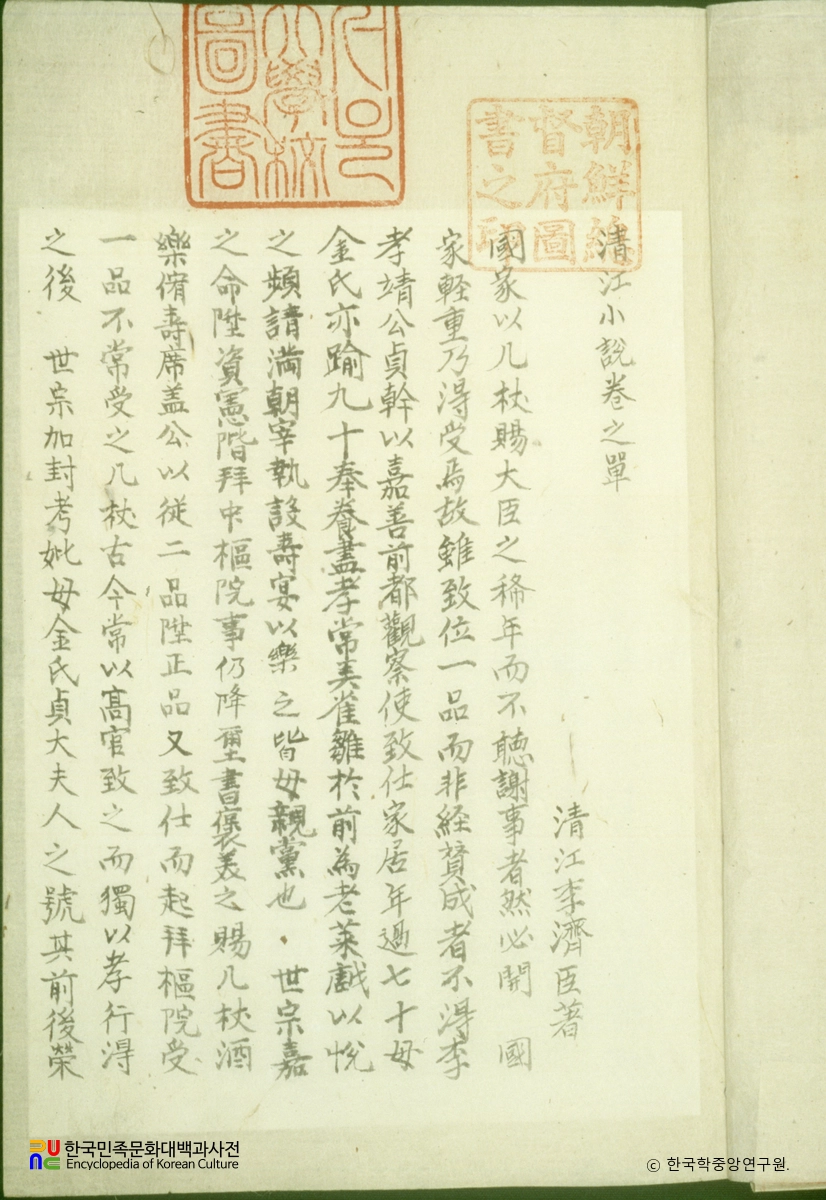 清江小說卷之單
清江李濟臣著
國家以几杖賜大臣之稀年而不聽謝事者然必開　國
家輕重乃得受焉故雖致位一品而非經贊成者不得李
孝靖公貞幹以嘉善前都觀察使致仕家居年過七十母
金氏亦踰九十奉養盡孝常弄雀雛於前為老萊戱以悅
之頻請滿朝宰執設壽宴以樂之皆母親黨也　世宗嘉
之命陞資憲階拜中樞院事仍降璽書褒美之賜几杖酒
樂侑壽席盖公以従二品陞正品又致仕而起拜樞院受
一品不常受之几杖古今常以高官致之而獨以孝行得
之後　世宗加封考妣母金氏貞大夫人之號其前後榮
朝鮮總
督府圖
書之印
大學校
圖書
한국민족문화대백과사전
Encyclopedia of Korean Culture
© 한국학중앙연구원.